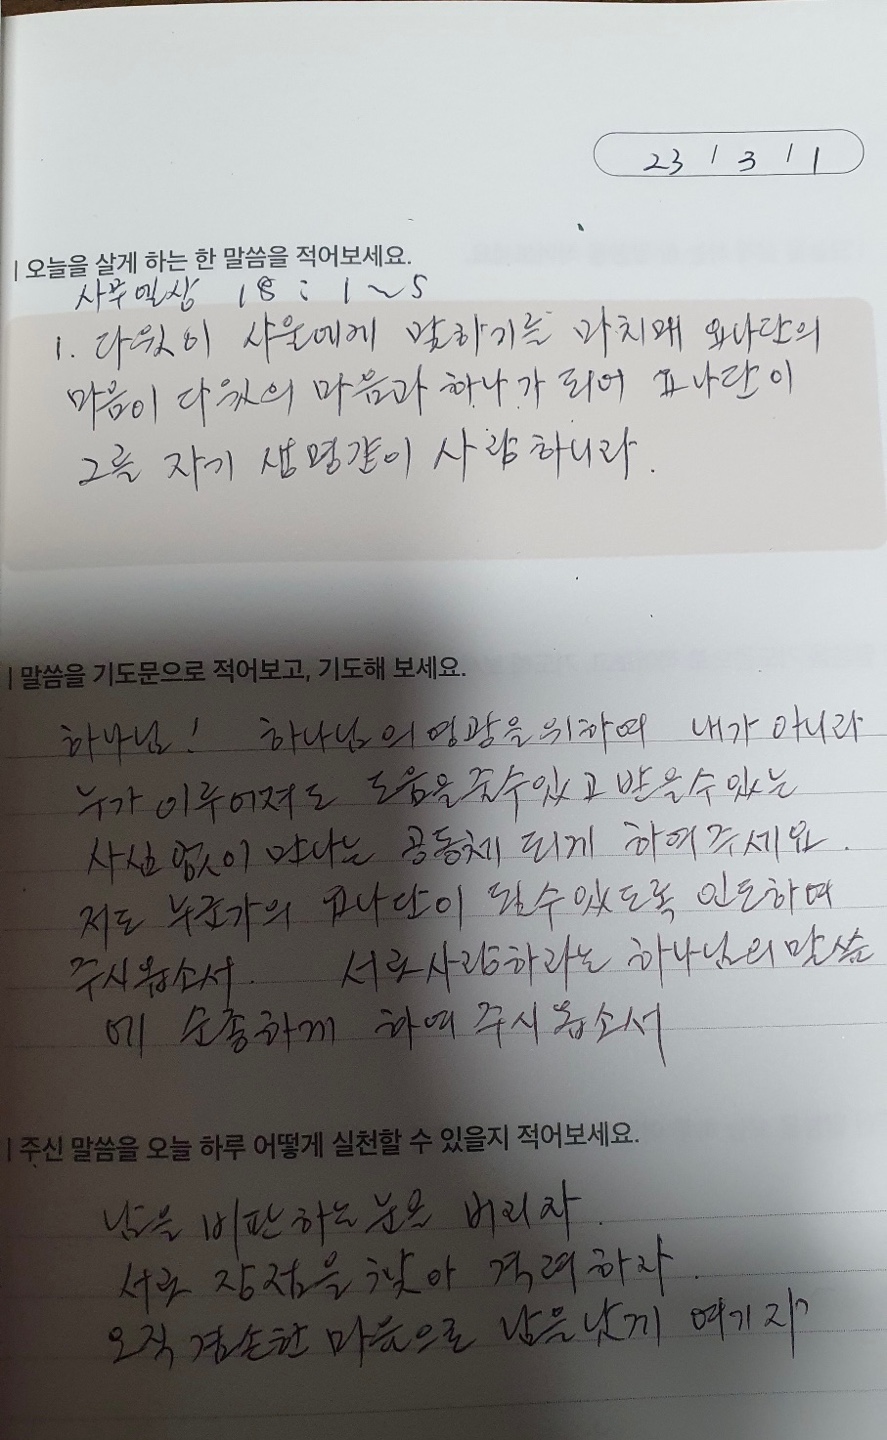 23 / 3 / 1
| 오늘을 살게 하는 한 말씀을 적어보세요.
사무엘상 18 : 1~5
1. 다윗이 사울에게 말하기를 마치매 요나단의
마음이 다윗의 마음과 하나가 되어 요나단이
그를 자기 생명같이 사랑하니라.
| 말씀을 기도문으로 적어보고, 기도해 보세요.
하나님! 하나님의 영광을 위하여 내가 아니라
누가 이루어져도 도움을 줄수있고 받을수있는
사심 없이 만나는 공동체 되게 하여주세요.
저도 누군가의 요나단이 될수있도록 인도하여
주시옵소서. 서로사랑하라는 하나님의 말씀
에 순종하게 하여 주시옵소서
| 주신 말씀을 오늘 하루 어떻게 실천할 수 있을지 적어보세요.
남을 비판하는 눈을 버리자.
서로 장점을 찾아 격려하자.
오직 겸손한 마음으로 남을낫게 여기자